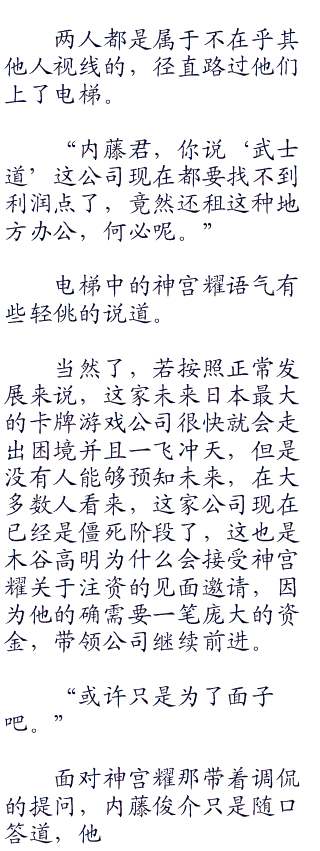 两人都是属于不在乎其
他人视线的，径直路过他们
上了电梯。
“内藤君，你说‘武士
道’这公司现在都要找不到
利润点了，竟然还租这种地
方办公，何必呢。”
电梯中的神宫耀语气有
些轻佻的说道。
当然了，若按照正常发
展来说，这家未来日本最大
的卡牌游戏公司很快就会走
出困境并且一飞冲天，但是
没有人能够预知未来，在大
多数人看来，这家公司现在
已经是僵死阶段了，这也是
木谷高明为什么会接受神宫
耀关于注资的见面邀请，因
为他的确需要一笔庞大的资
金，带领公司继续前进。
“或许只是为了面子
吧。”
面对神宫耀那带着调侃
的提问，内藤俊介只是随口
答道，他